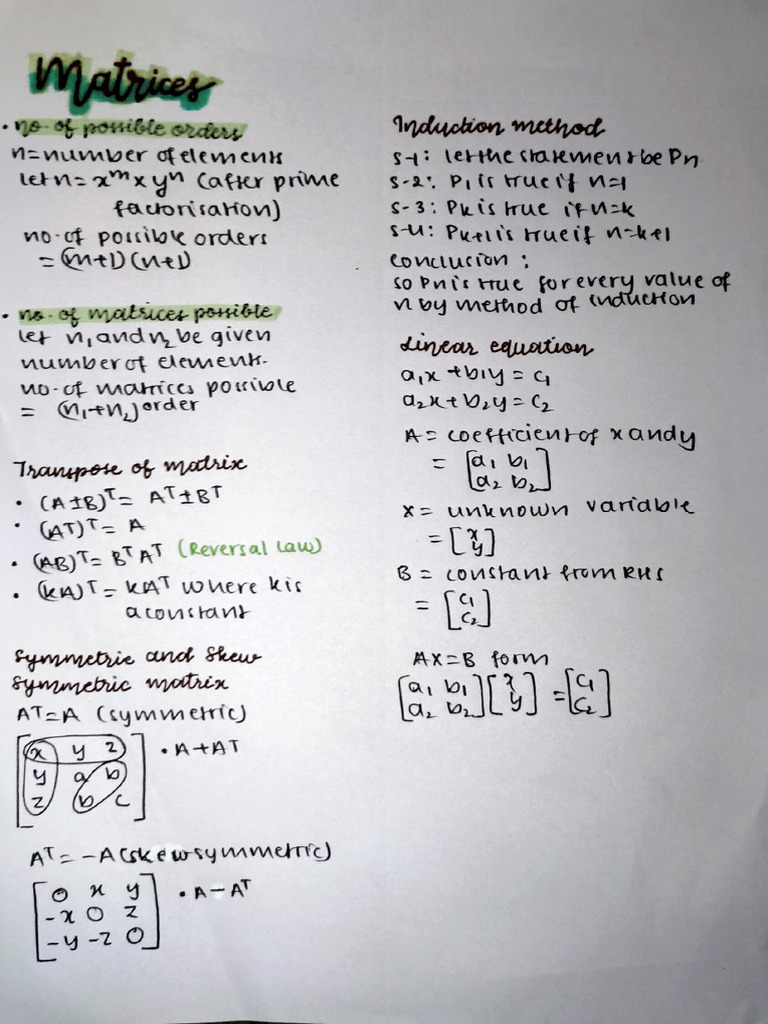 Matrices
• no. of possible orders
n = number of elements
let n = x^m × y^n (after prime
factorisation)
no. of possible orders
= (m+1) (n+1)
• no. of matrices possible
let n₁ and n₂ be given
number of elements.
no. of matrices possible
= (n₁+n₂)^order
Transpose of matrix
• (A±B)ᵀ = Aᵀ±Bᵀ
• (Aᵀ)ᵀ = A
• (AB)ᵀ = BᵀAᵀ (Reversal law)
• (kA)ᵀ = kAᵀ where k is
a constant
Symmetric and Skew
symmetric matrix
Aᵀ = A (symmetric)
x y z • A+Aᵀ
y a b
z b c
Aᵀ = -A (skew symmetric)
0 x y • A-Aᵀ
-x 0 z
-y -z 0
Induction method
S-1: let the statement be Pn
S-2: P₁ is true if n=1
S-3: Pk is true if n=k
S-4: Pk+1 is true if n=k+1
Conclusion:
so Pn is true for every value of
n by method of induction
Linear equation
a₁x + b₁y = c₁
a₂x + b₂y = c₂
A = coefficient of x and y
= [a₁ b₁
a₂ b₂]
X = unknown variable
= [x
y]
B = constant from RHS
= [c₁
c₂]
AX=B form
[a₁ b₁ [x = [c₁
a₂ b₂] y] c₂]